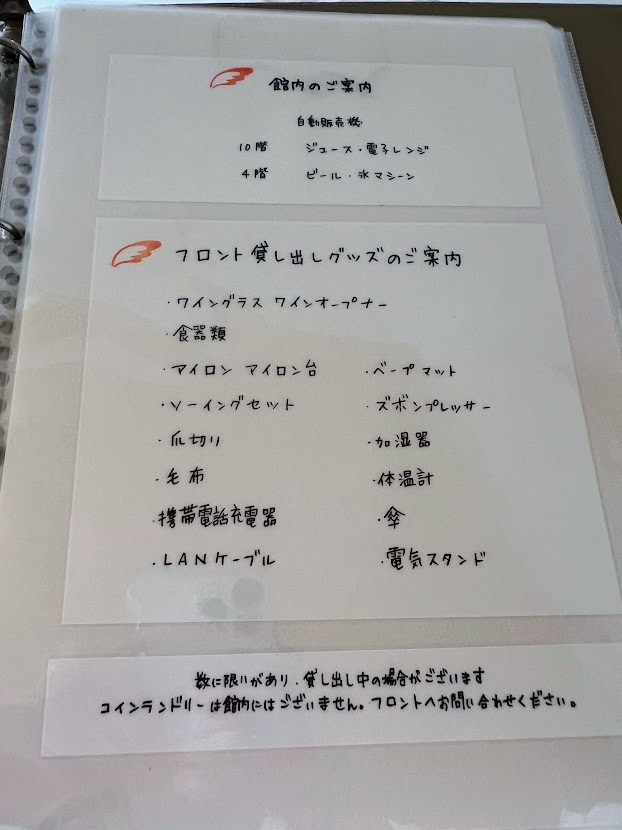 館内のご案内
自動販売機
10階 ジュース・電子レンジ
4階 ビール・氷マシーン
フロント貸し出しグッズのご案内
・ワイングラス ワインオープナー
・食器類
・アイロン アイロン台 ・ベープマット
・ソーイングセット ・ズボンプレッサー
・爪切り ・加湿器
・毛布 ・体温計
・携帯電話充電器 ・傘
・LANケーブル ・電気スタンド
数に限りがあり、貸し出し中の場合がございます
コインランドリーは館内にはございません。フロントへお問い合わせください。